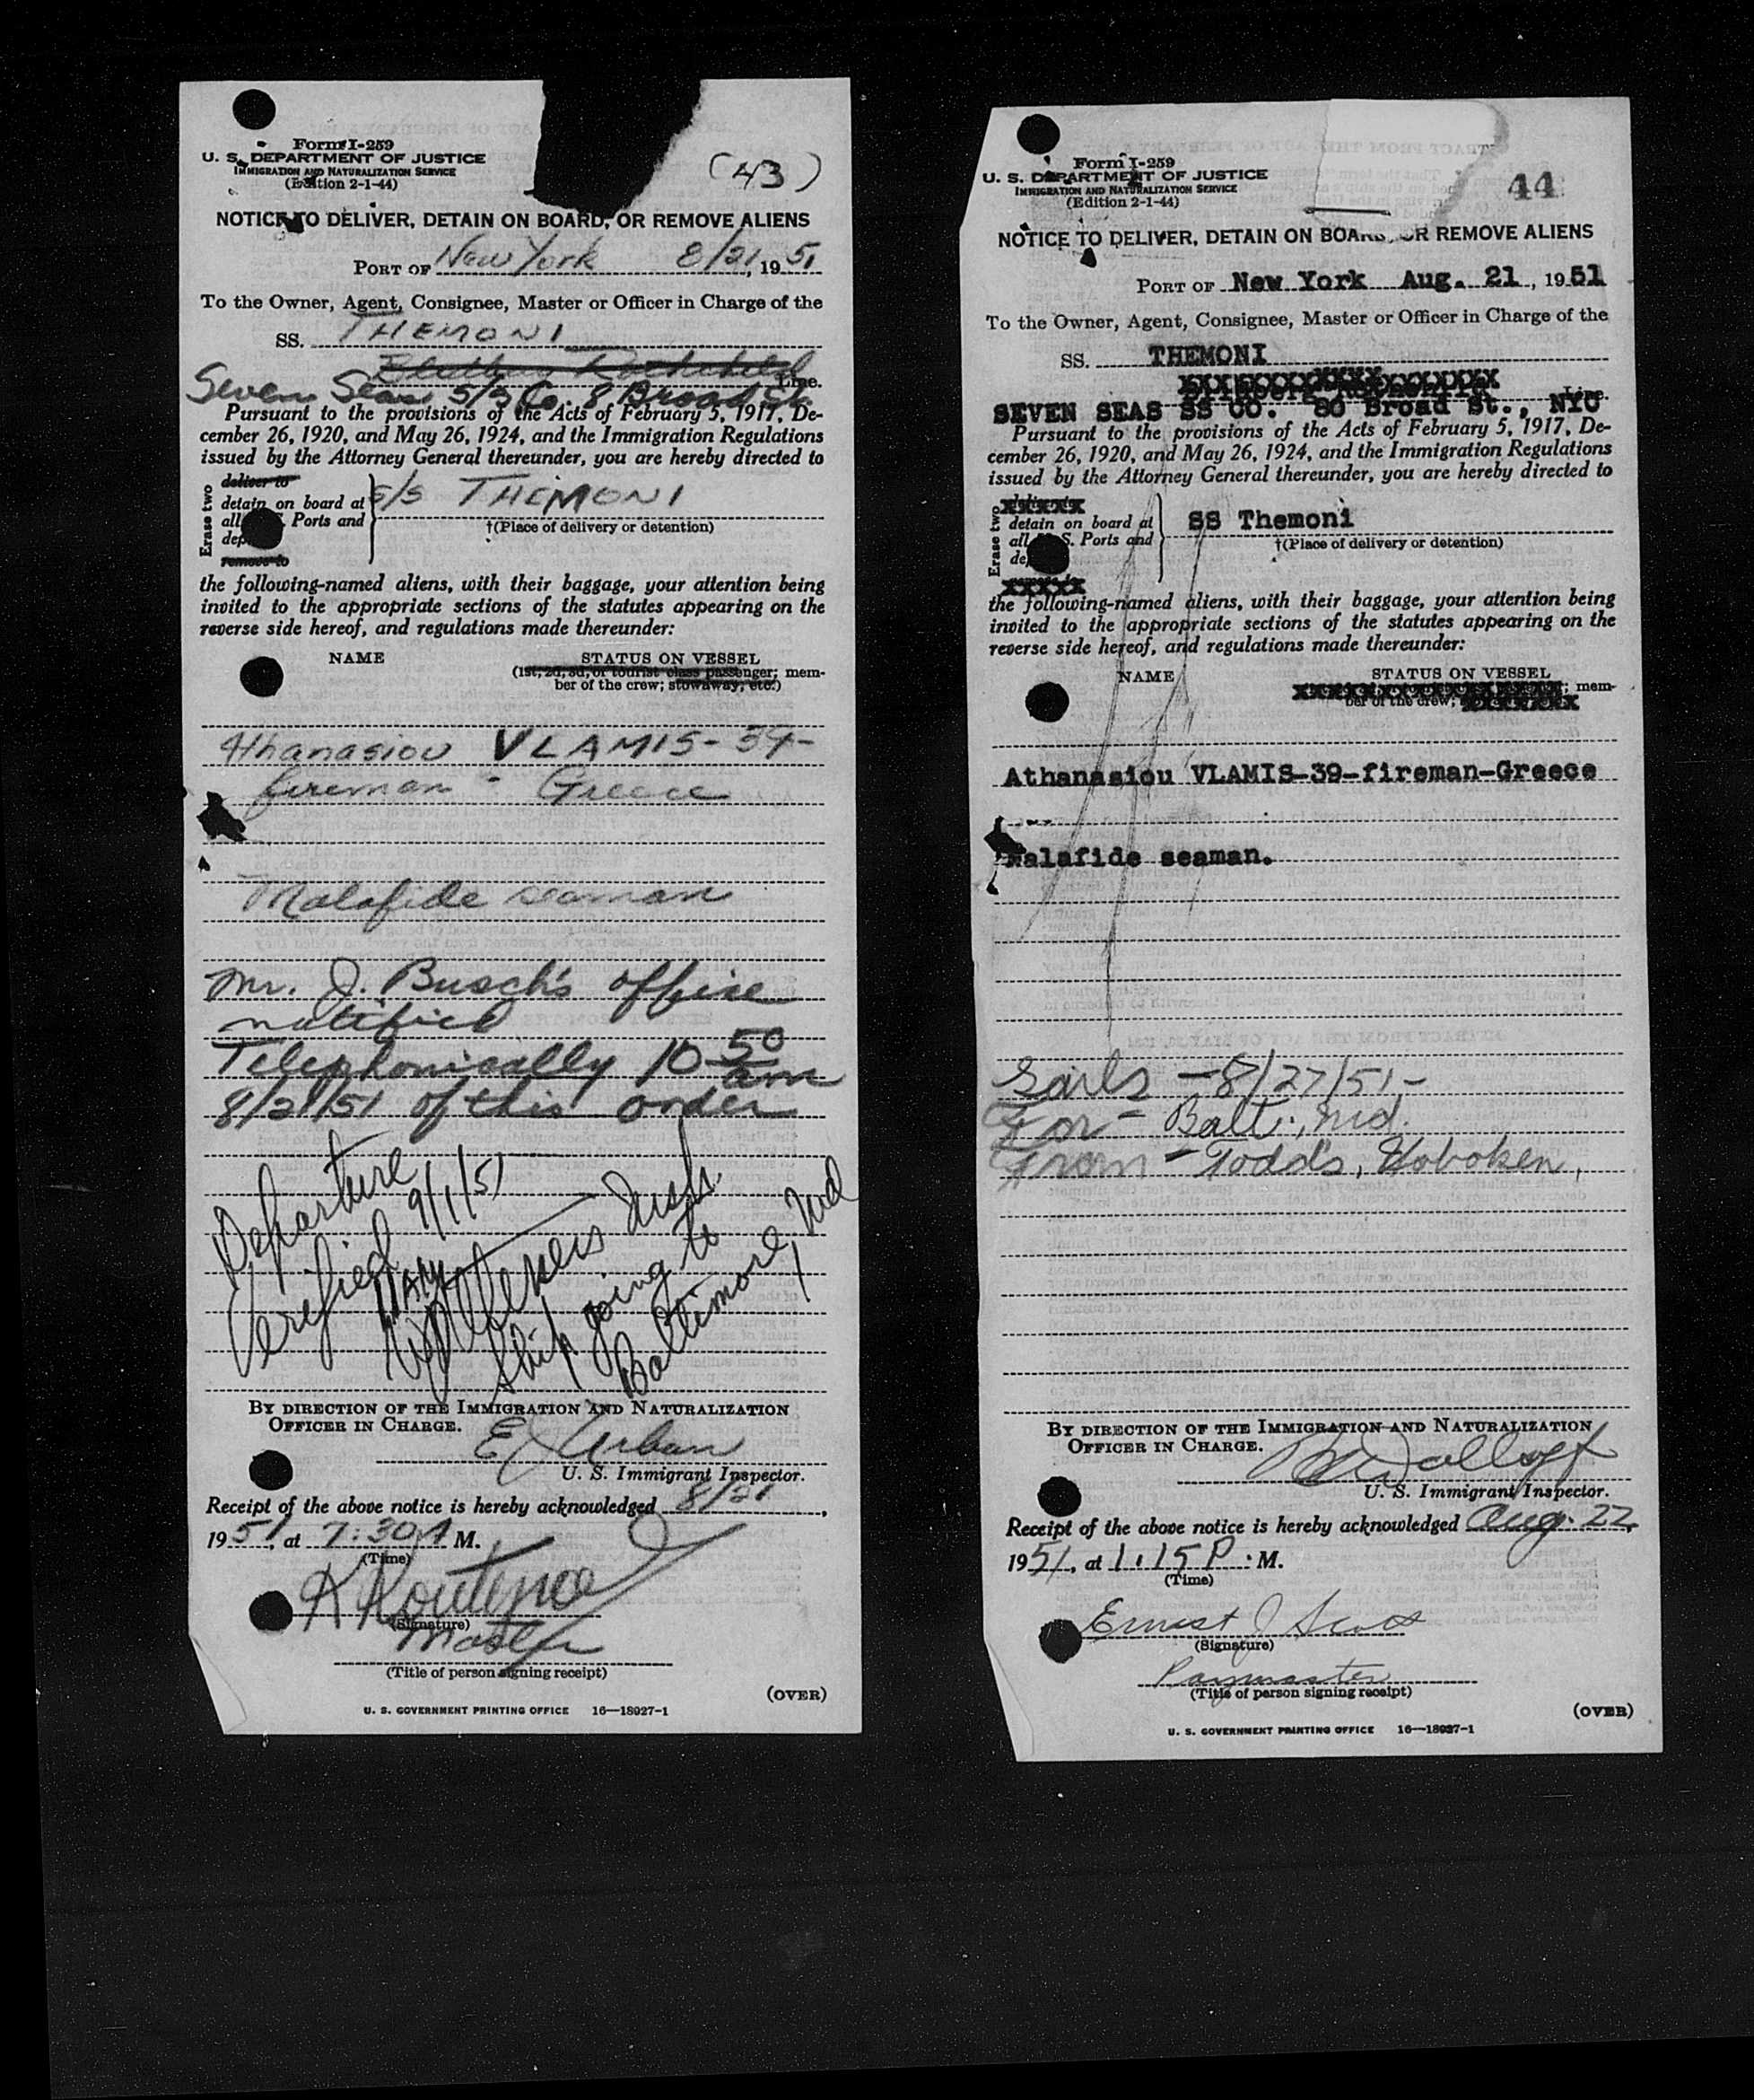 Form I-259
U. S. DEPARTMENT OF JUSTICE
IMMIGRATION AND NATURALIZATION SERVICE
(Edition 2-1-44)
(43)
NOTICE TO DELIVER, DETAIN ON BOARD, OR REMOVE ALIENS
PORT OF New York 8/21, 1951
To the Owner, Agent, Consignee, Master or Officer in Charge of the
SS. THEMONI
Line.
Seven Seas S/S Co. 8 Broad St.
Pursuant to the provisions of the Acts of February 5, 1917, De-
cember 26, 1920, and May 26, 1924, and the Immigration Regulations
issued by the Attorney General thereunder, you are hereby directed to
Erase two
deliver to
detain on board at
all S. Ports and
remove to
S/S THEMONI
†(Place of delivery or detention)
the following-named aliens, with their baggage, your attention being
invited to the appropriate sections of the statutes appearing on the
reverse side hereof, and regulations made thereunder:
NAME
STATUS ON VESSEL
(1st, 2d, 3d, or tourist class passenger; mem-
ber of the crew; stowaway, etc.)
Athanasiou VLAMIS - 39 -
fireman - Greece
Malafide seaman
Mr. J. Busch's office
notified
Telephonically 10 50 am
8/21/51 of this order
Departure
Verified 9/1/51
ship going to
Baltimore, Md
BY DIRECTION OF THE IMMIGRATION AND NATURALIZATION
OFFICER IN CHARGE.
E Urban
U. S. Immigrant Inspector.
Receipt of the above notice is hereby acknowledged 8/21,
1951, at 7:30 A M.
(Time)
(Signature)
Master
(Title of person signing receipt)
(OVER)
U. S. GOVERNMENT PRINTING OFFICE 16—18027-1
Form I-259
U. S. DEPARTMENT OF JUSTICE
IMMIGRATION AND NATURALIZATION SERVICE
(Edition 2-1-44)
44
NOTICE TO DELIVER, DETAIN ON BOARD, OR REMOVE ALIENS
PORT OF New York Aug. 21, 1951
To the Owner, Agent, Consignee, Master or Officer in Charge of the
SS. THEMONI
Line.
SEVEN SEAS SS CO. 80 Broad St., NYC
Pursuant to the provisions of the Acts of February 5, 1917, De-
cember 26, 1920, and May 26, 1924, and the Immigration Regulations
issued by the Attorney General thereunder, you are hereby directed to
Erase two
detain on board at
all U. S. Ports and
SS Themoni
†(Place of delivery or detention)
the following-named aliens, with their baggage, your attention being
invited to the appropriate sections of the statutes appearing on the
reverse side hereof, and regulations made thereunder:
NAME
STATUS ON VESSEL
; mem-
ber of the crew;
Athanasiou VLAMIS-39-fireman-Greece
Malafide seaman.
Sails - 8/27/51 -
For - Balt., Md.
From - Todds, Hoboken,
BY DIRECTION OF THE IMMIGRATION AND NATURALIZATION
OFFICER IN CHARGE.
U. S. Immigrant Inspector.
Receipt of the above notice is hereby acknowledged Aug. 22,
1951, at 1.15 P. M.
(Time)
Ernest J Scott
(Signature)
Paymaster
(Title of person signing receipt)
(OVER)
U. S. GOVERNMENT PRINTING OFFICE 16—18027-1